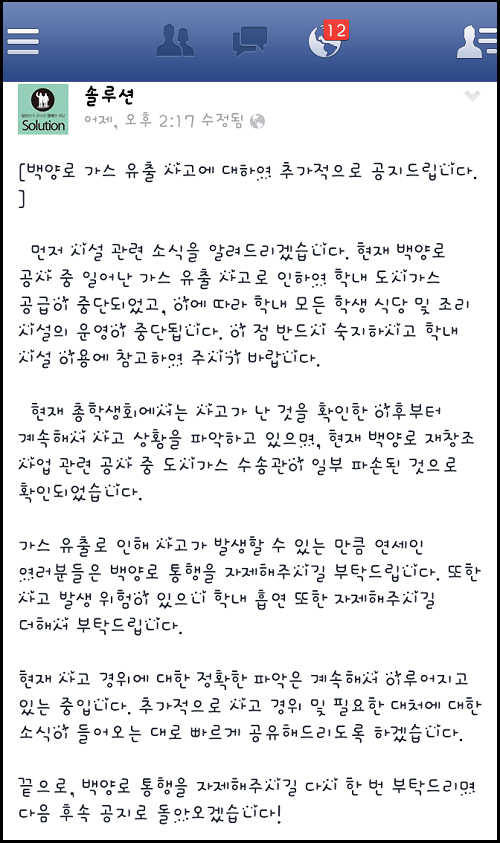 12
솔루션
어제, 오후 2:17 수정됨
Solution
[백양로 가스 유출 사고에 대하여 추가적으로 공지드립니다.
]
먼저 시설 관련 소식을 알려드리겠습니다. 현재 백양로
공사 중 일어난 가스 유출 사고로 인하여 학내 도시가스
공급이 중단되었고, 이에 따라 학내 모든 학생 식당 및 조리
시설의 운영이 중단됩니다. 이 점 반드시 숙지하시고 학내
시설 이용에 참고하여 주시기 바랍니다.
현재 총학생회에서는 사고가 난 것을 확인한 이후부터
계속해서 사고 상황을 파악하고 있으며, 현재 백양로 재창조
사업 관련 공사 중 도시가스 수송관이 일부 파손된 것으로
확인되었습니다.
가스 유출로 인해 사고가 발생할 수 있는 만큼 연세인
여러분들은 백양로 통행을 자제해주시길 부탁드립니다. 또한
사고 발생 위험이 있으니 학내 흡연 또한 자제해주시길
더해서 부탁드립니다.
현재 사고 경위에 대한 정확한 파악은 계속해서 이루어지고
있는 중입니다. 추가적으로 사고 경위 및 필요한 대처에 대한
소식이 들어오는 대로 빠르게 공유해드리도록 하겠습니다.
끝으로, 백양로 통행을 자제해주시길 다시 한 번 부탁드리며
다음 후속 공지로 돌아오겠습니다!